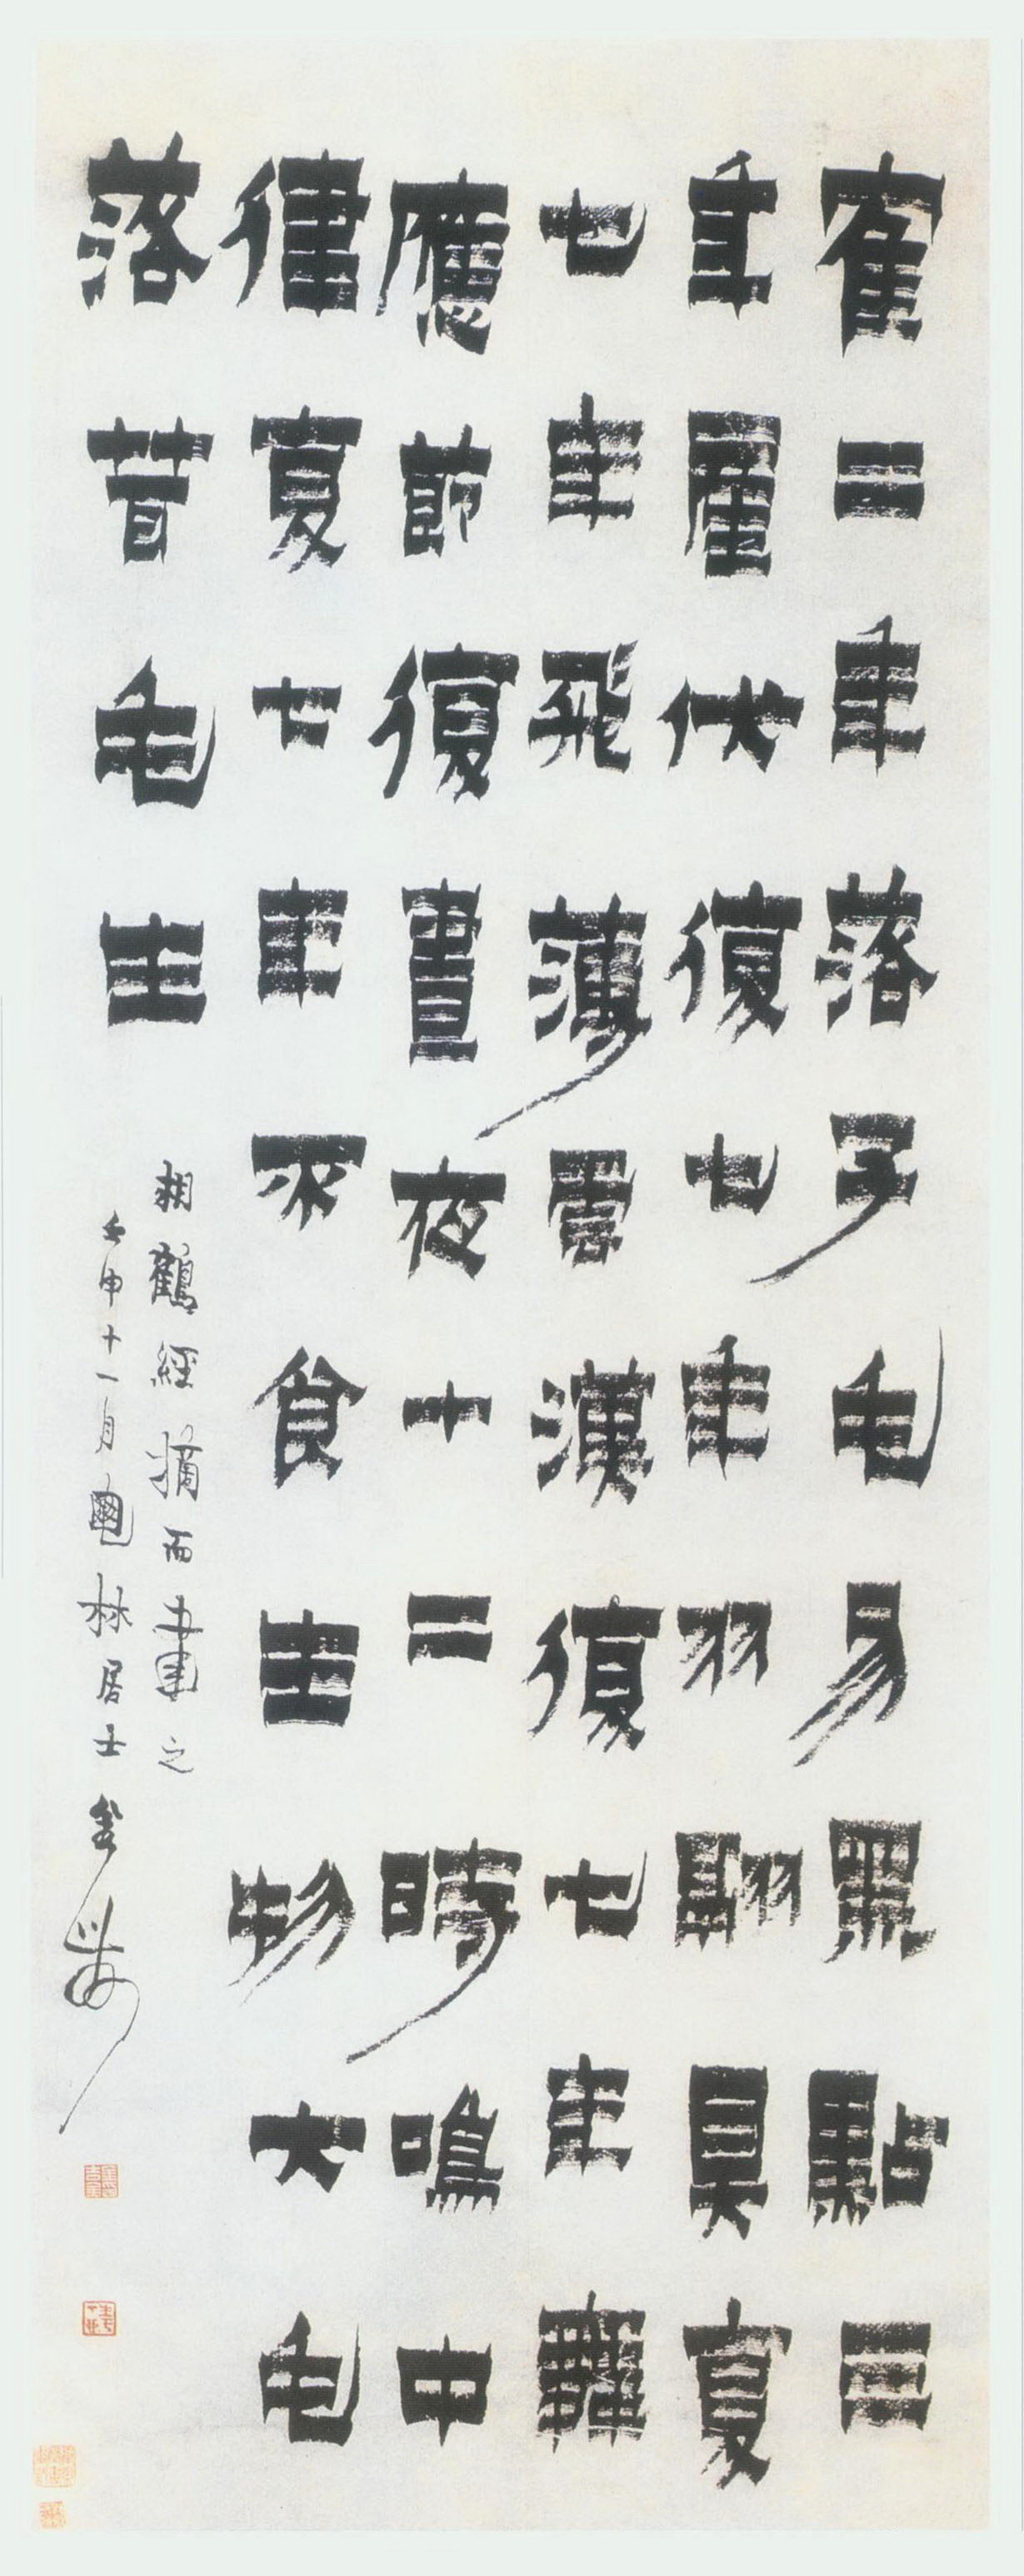 隺二年落子毛易黑點三
年產伏復七年羽翮具夏
七年飛薄雲漢復七年舞
應節復晝夜十二時鳴中
律夏七年不食生物大毛
落茸毛生
相鶴經摘而書之
壬申十一月龜林居士金農